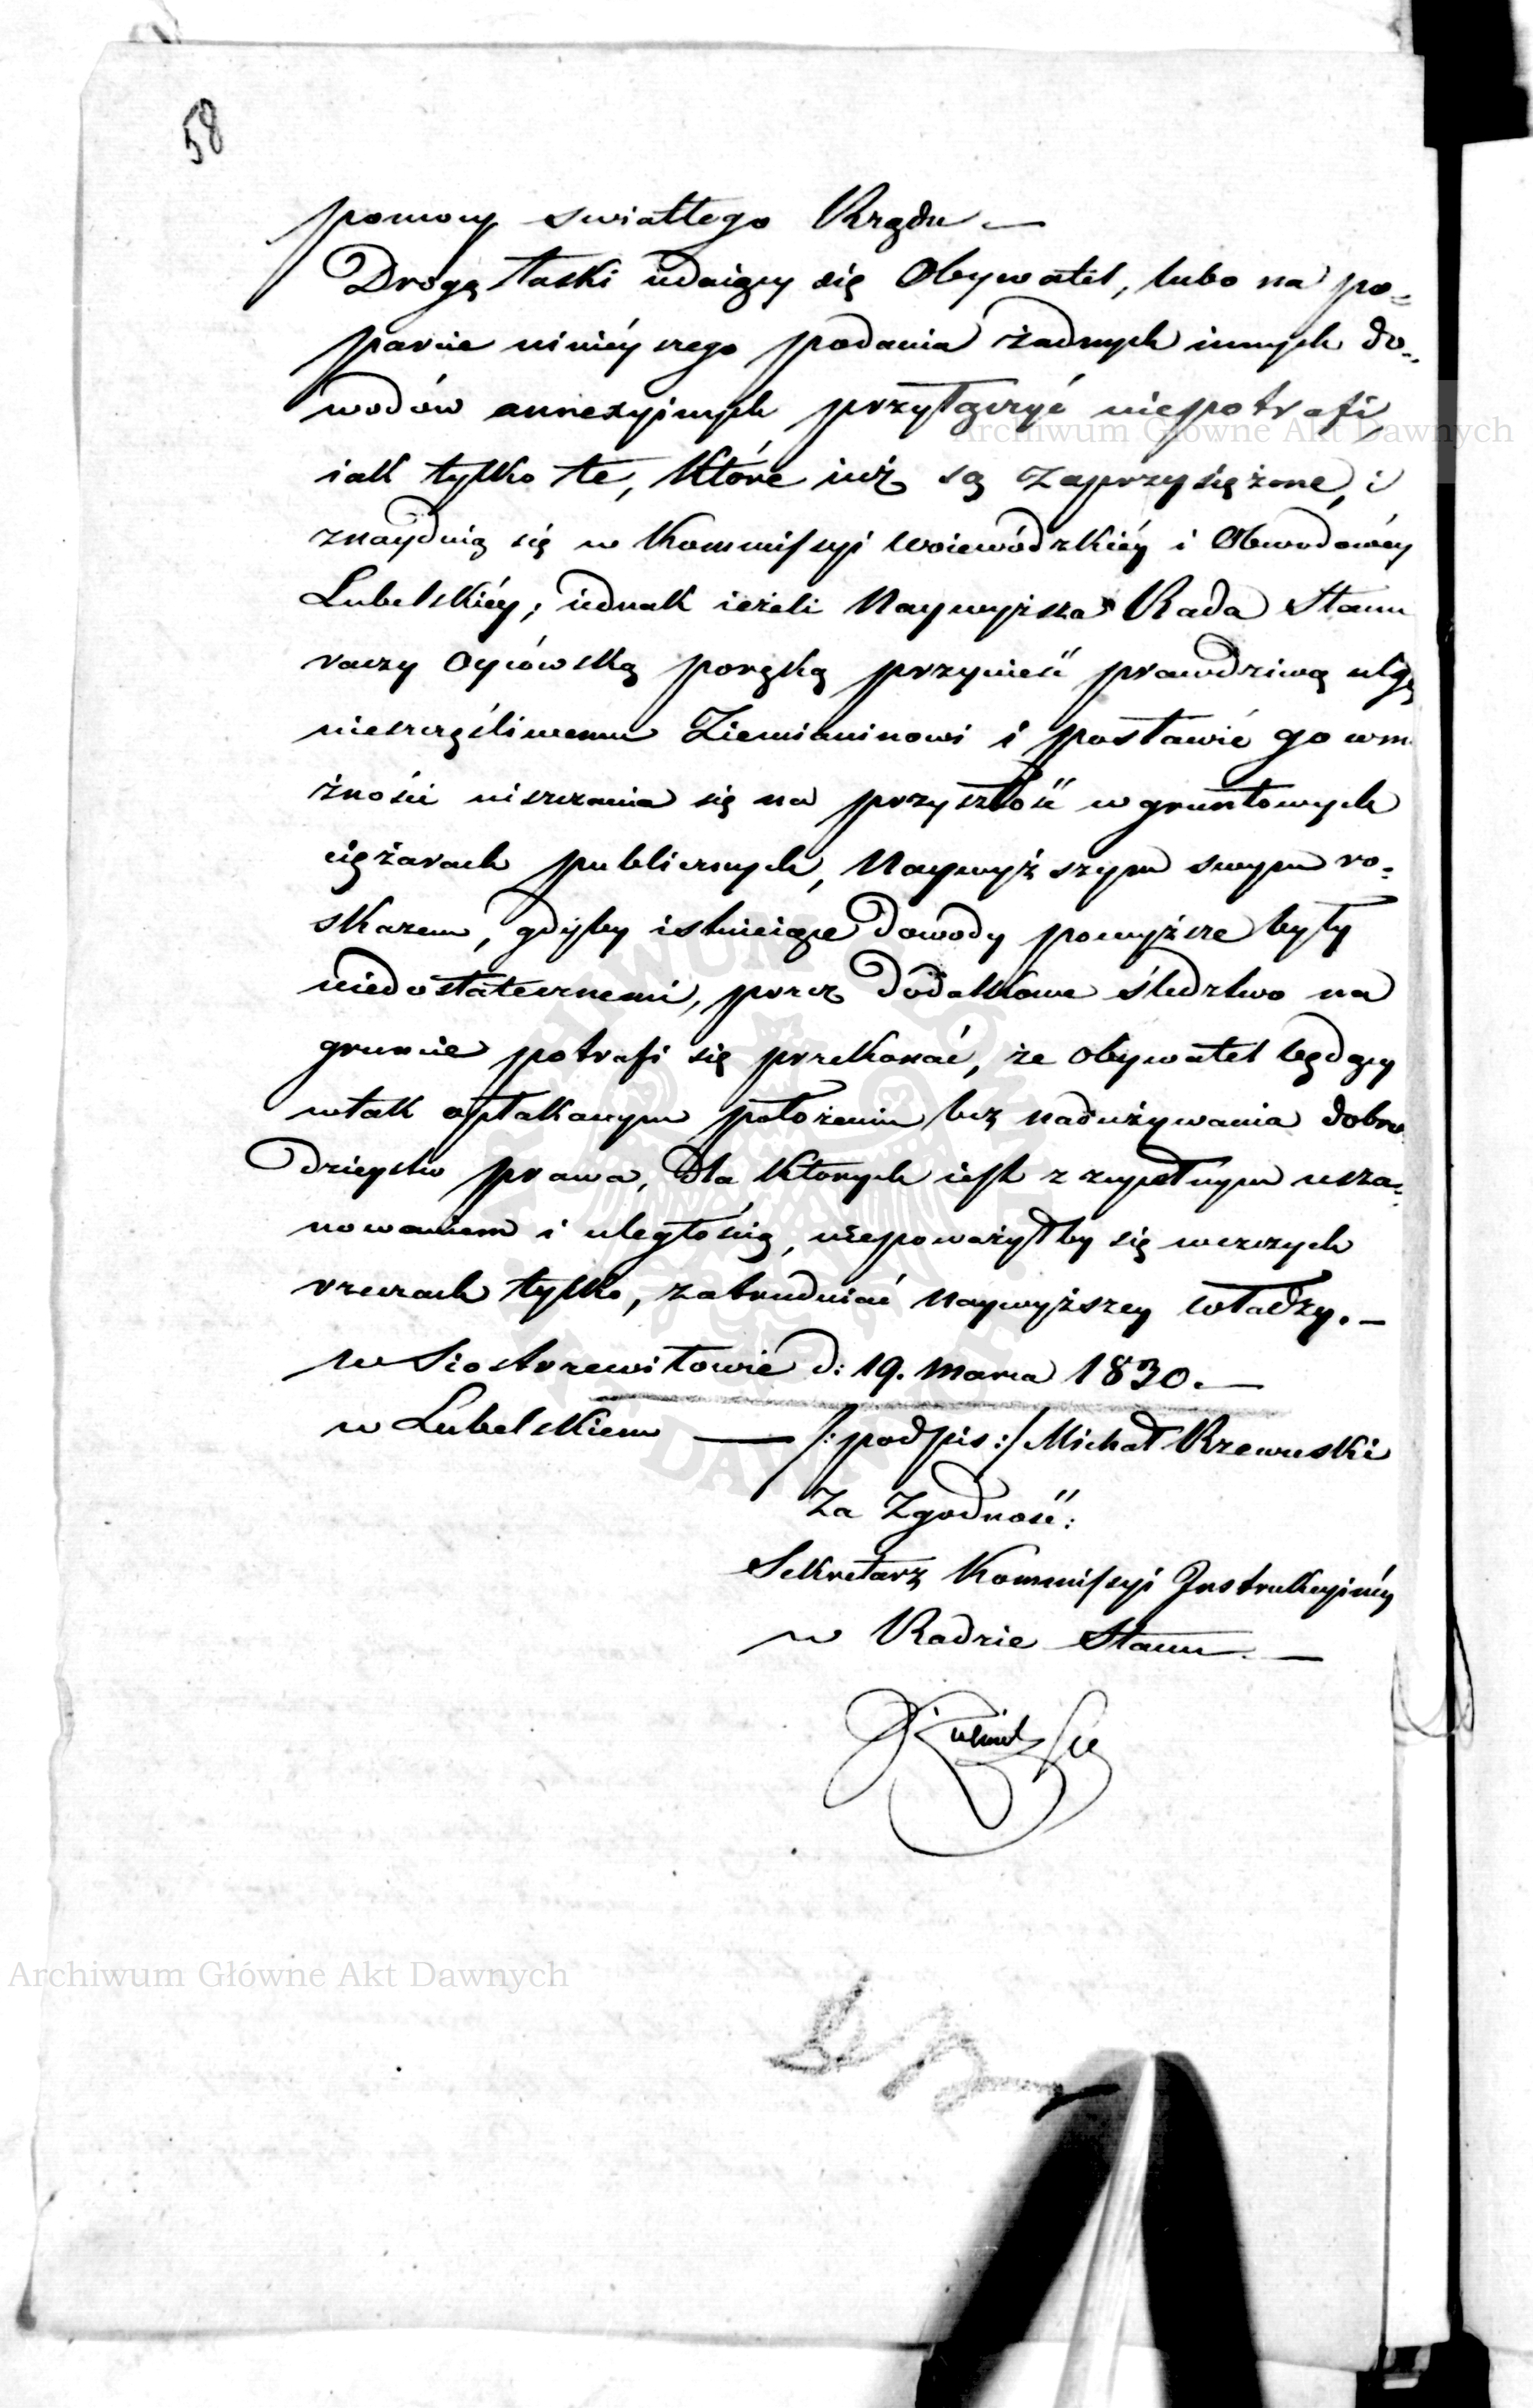 58
pomocy swiatłego Rządu —
Drogą łaski udaiący się Obywatel, lubo na po=
parcie ninieyszego podania żadnych innych do=
wodów annexyinych przyłączyć niepotrafi
iak tylko te, które iuż są zaprzysiężone, i
znayduią się w Kommissyi Woiewódzkiéy i Obwodowéy
Lubelskiéy; iednak ieżeli Naywyższa Rada Stanu
raczy Oycówską poręką przynieść prawdziwą ulgę
nieszczęśliwemu Ziemianinowi i postawić go wm
żności uiszczania się na przyszłość w gruntowych
ciężarach publicznych, Naywyższym swym ro=
skazem, gdyby istnieiące dowody powyższe były
niedostatecznemi, przez dodatkowe śledztwo na
gruncie potrafi się przekonać, że Obywatel będący
wtak opłakanym położeniu bez nadużywania dobro
dzieystw prawa, dla których iest z zupełnym usza=
nowaniem i uległością, nieposważyłby się wczczych
rzeczach tylko, zatrudniać Naywyższey władzy. —
w Siostrzewitowie d: 19. Marca 1830. —
w Lubelskiem — /: podpis :/ Michał Rzewuski
Za Zgodność:
Sekretarz Kommissyi Instrukcyinéy
w Radzie Stanu —
Archiwum Główne Akt Dawnych
Archiwum Główne Akt Dawnych